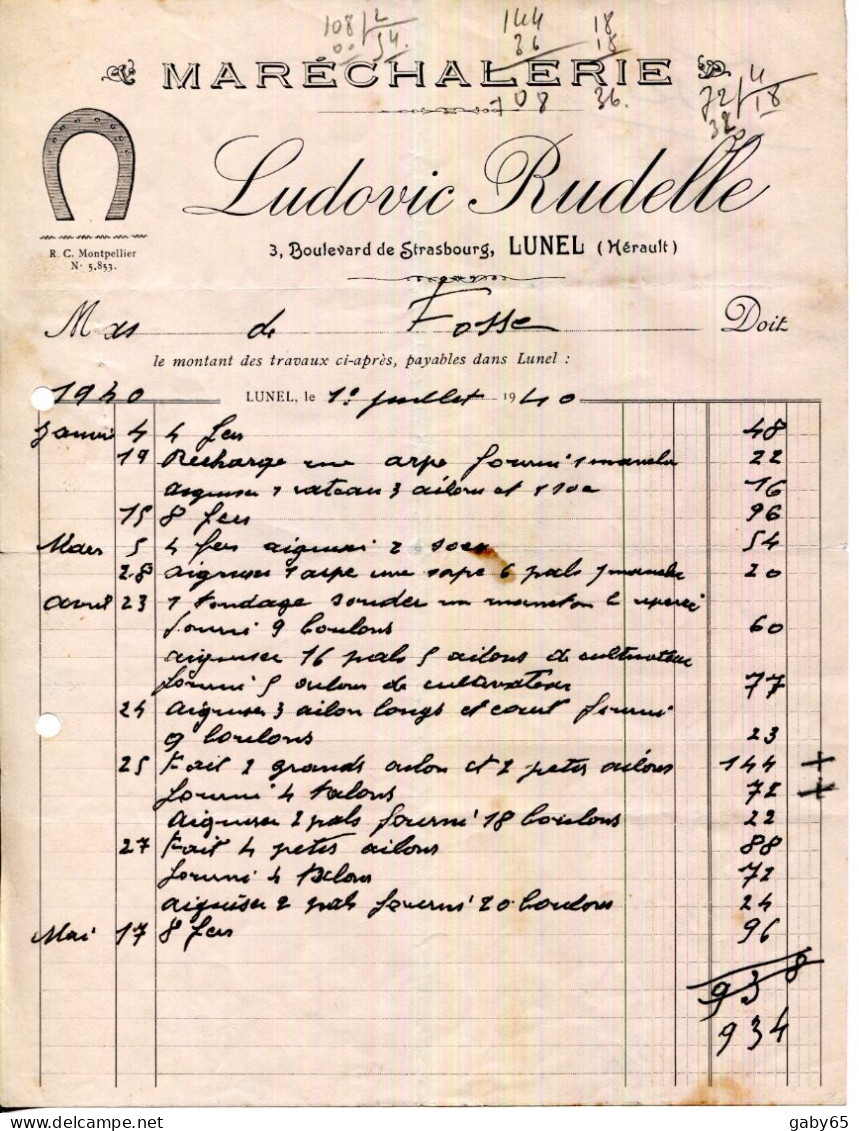 108 | 2
00 54.
144
36
108
18
18
36.
72 | 4
32 18
0
MARÉCHALERIE
Ludovic Rudelle
R. C. Montpellier
Nº 5.853.
3, Boulevard de Strasbourg, LUNEL (Hérault)
Mas de Fosse Doit
le montant des travaux ci-après, payables dans Lunel :
1940 LUNEL, le 1º juillet 1940
Janvi 4 4 fers 48
19 Recharge une arpe fourni 1 22
aiguiser 1 rateau 3 ailons et 1 soc 16
15 8 fers 96
Mars 5 4 fers aiguisé 2 socs 54
28 aiguiser 1 arpe une sape 6 pals 1 20
avril 23 1 souder un maneton
fourni 9 boulons 60
aiguiser 16 pals 5 ailons de cultivateur
fourni 5 de cultivateur 77
24 aiguiser 3 ailon longs et court fourni
9 boulons 23
25 Fait 2 grands ailon et 2 petits ailons 144 +
fourni 4 talons 72 +
aiguiser 2 pals fourni 18 boulons 22
27 Fait 4 petits ailons 88
fourni 4 talons 72
aiguiser 2 pals fourni 20 boulons 24
Mai 17 8 fers 96
938
934
gaby65